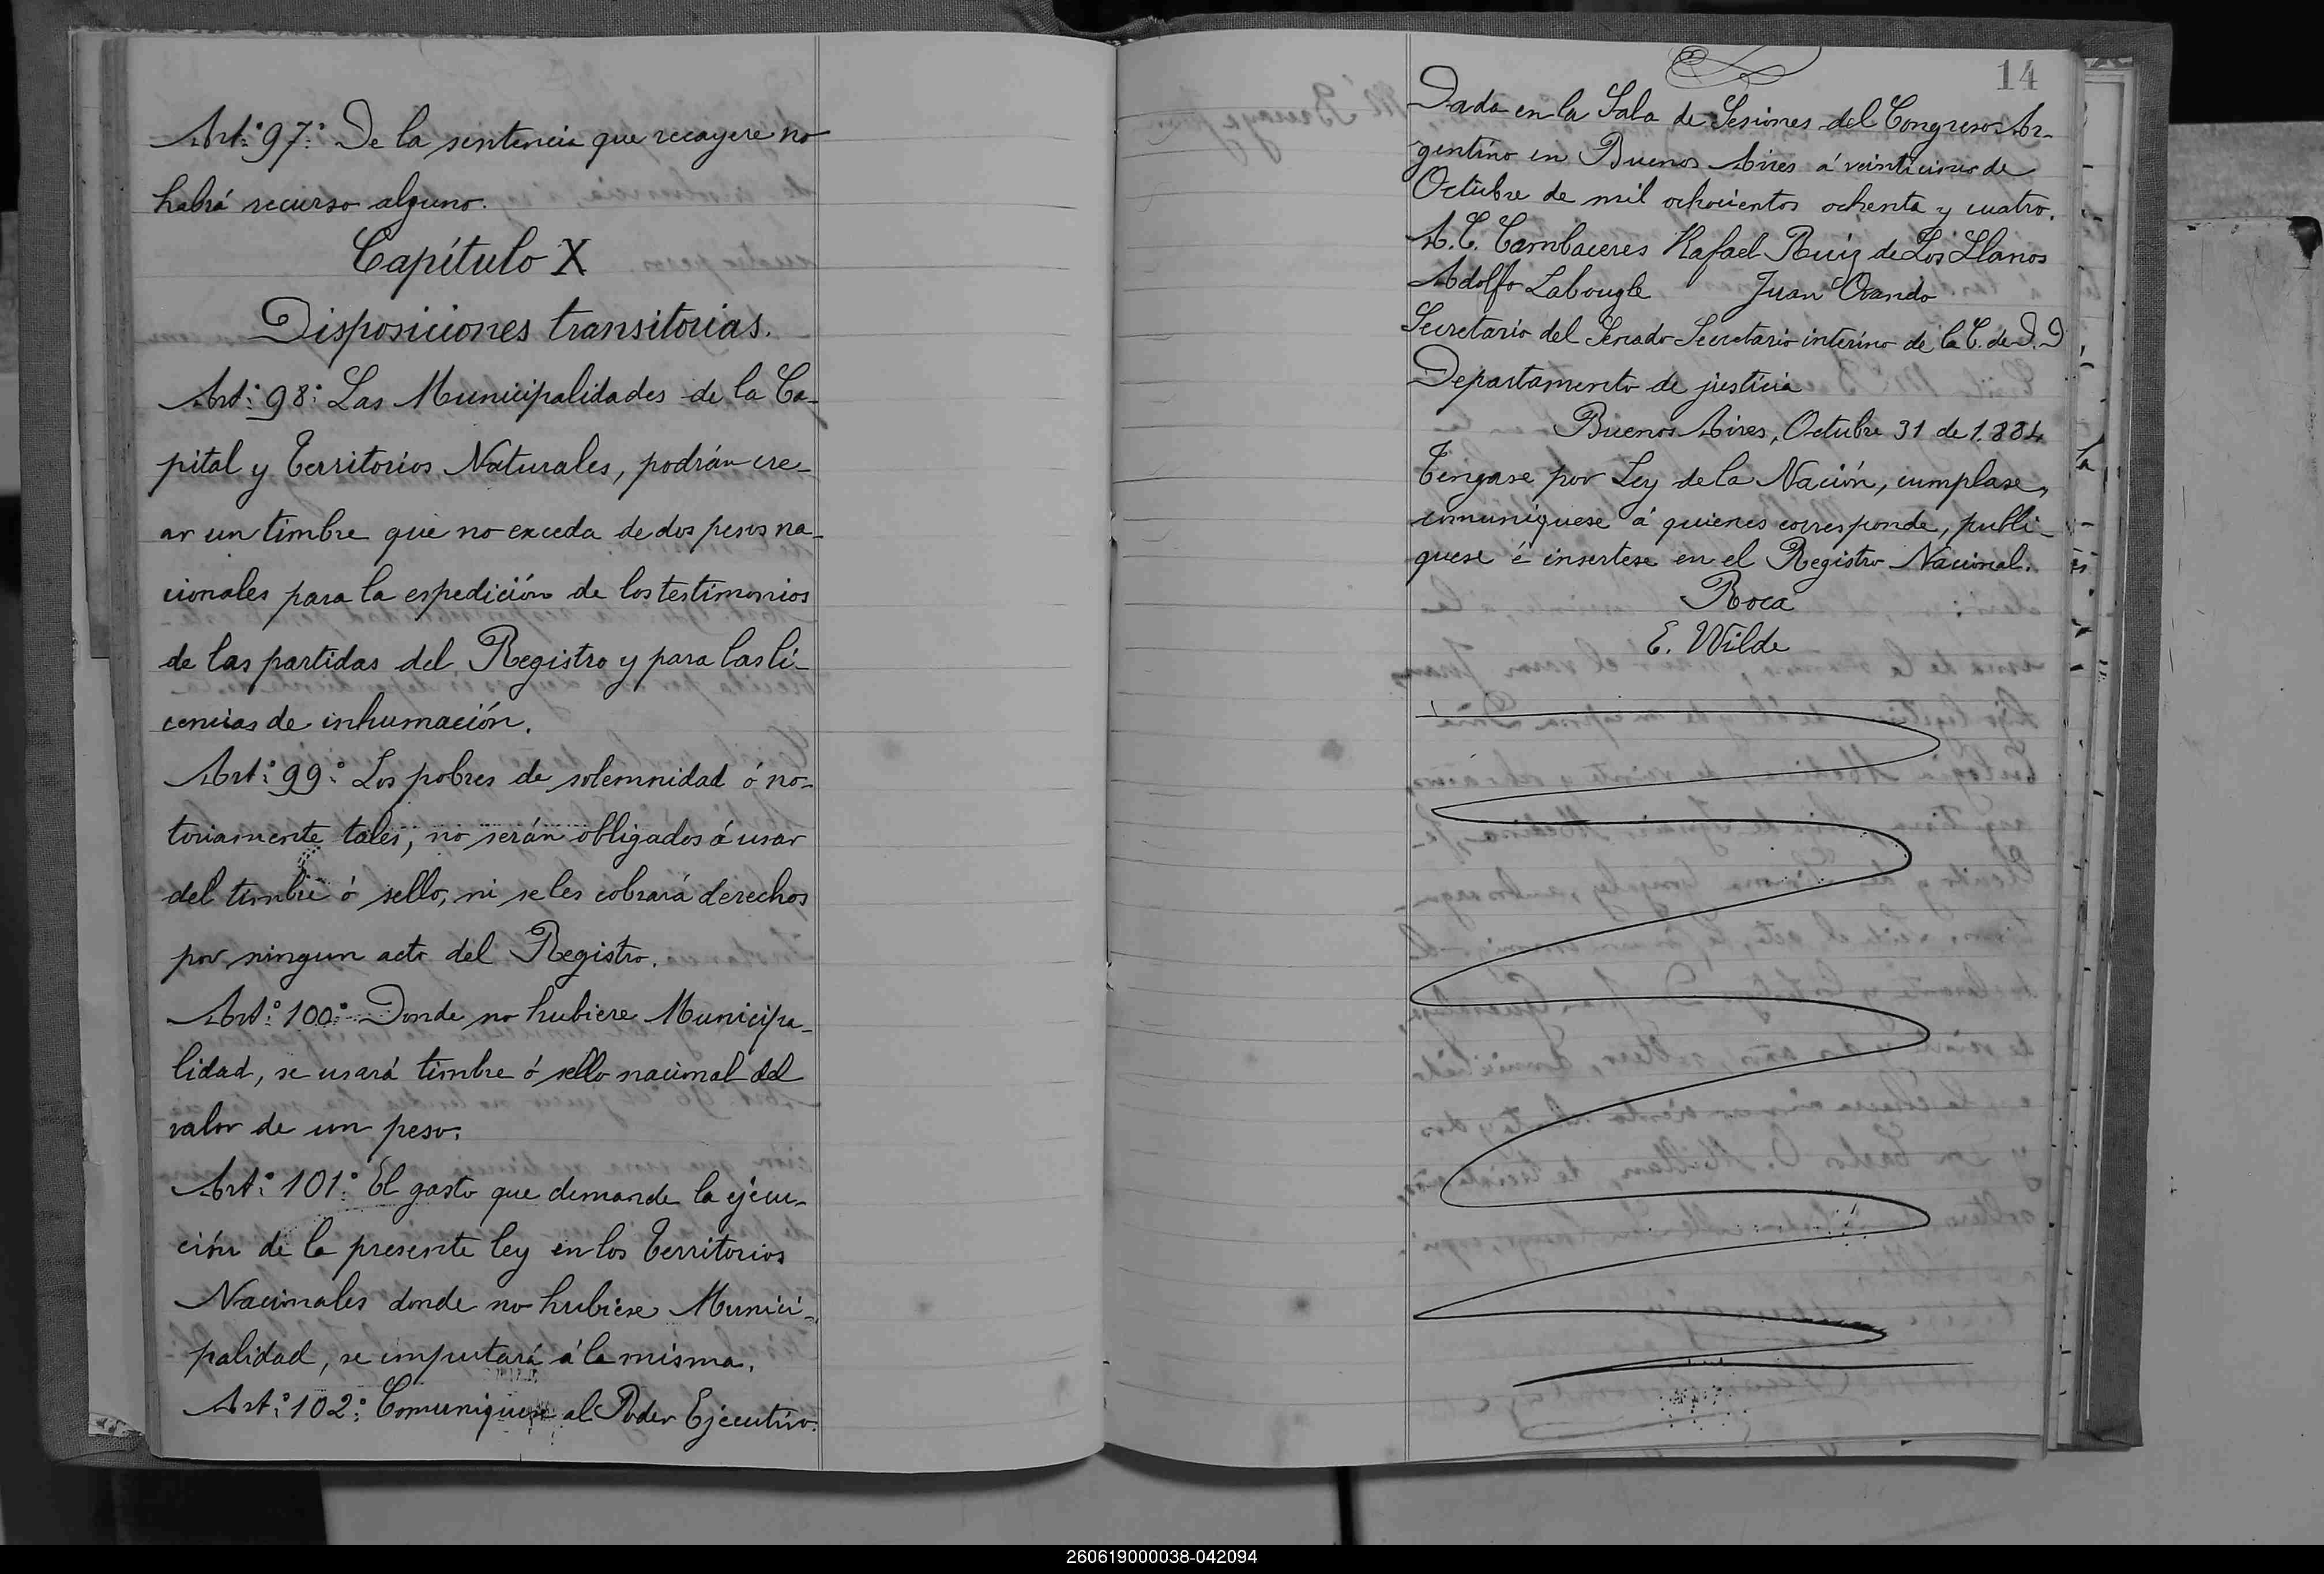 Art.º 97.º De la sentencia que recayere no
habrá recurso alguno.
Capítulo X
Disposiciones transitorias.
Art.º 98.º Las Municipalidades de la Ca-
pital y Territorios Naturales, podrán cre-
ar un timbre que no exceda de dos pesos na-
cionales para la espedición de los testimonios
de las partidas del Registro y para las li-
cencias de inhumación.
Art.º 99.º Los pobres de solemnidad ó no-
toriamente tales, no serán obligados á usar
del timbre ó sello, ni se les cobrará derechos
por ningun acto del Registro.
Art.º 100.º Donde no hubiere Municipa-
lidad, se usará timbre ó sello nacional del
valor de un peso.
Art.º 101.º El gasto que demande la ejecu-
ción de la presente ley en los Territorios
Nacionales donde no hubiese Munici-
palidad, se imputará á la misma.
Art.º 102.º Comuniquese al Poder Ejecutivo.
14
Dada en la Sala de Sesiones del Congreso Ar-
gentino en Buenos Aires á veinticinco de
Octubre de mil ochocientos ochenta y cuatro.
A. C. Cambaceres Rafael Ruiz de Los Llanos
Adolfo Labougle Juan Ovando
Secretario del Senado Secretario interino de la C. de D. D
Departamento de justicia
Buenos Aires, Octubre 31 de 1.884
Tengase por Ley de la Nación, cumplase,
comuniquese á quienes corresponde, publi-
quese é insertese en el Registro Nacional.
Roca
E. Wilde
260619000038-042094